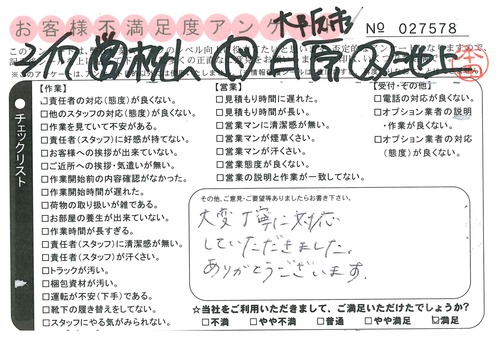 お客様不満足度アンケ
大阪市
No 027578
【作業】
□責任者の対応(態度)が良くない。
□他のスタッフの対応(態度)が良くない。
□作業を見ていて不安がある。
□責任者(スタッフ)に好感が持てない。
□お客様への挨拶が出来ていない。
□ご近所への挨拶・気遣いが無い。
□作業開始前の内容確認がなかった。
□作業開始時間が遅れた。
□荷物の取り扱いが雑である。
□お部屋の養生が出来ていない。
□作業が長すぎる。
□責任者(スタッフ)に清潔感が無い。
□責任者(スタッフ)が汗くさい。
□トラックが汚い。
□梱包資材が汚い。
□運転が不安(下手)である。
□靴下の履き替えをしてない。
□スタッフにやる気がみられない。
【営業】
□見積もり時間に遅れた。
□見積もり時間が長い。
□営業マンに清潔感が無い。
□営業マンが煙草くさい。
□営業マンが汗くさい。
□営業態度が良くない。
□営業の説明と作業が一致してない。
【受付・その他】
□電話の対応が良くない。
□オプション業者の説明
・作業が良くない。
□オプション業者の対応
(態度)が良くない。
●チェックリスト
その他、ご意見・ご要望等ありましたらお書き下さい。
大変丁寧に対応
していただきました。
ありがとうございます。
☆当社をご利用いただきまして、ご満足いただけたでしょうか?
□不満 □やや不満 □普通 □やや満足 ☑満足